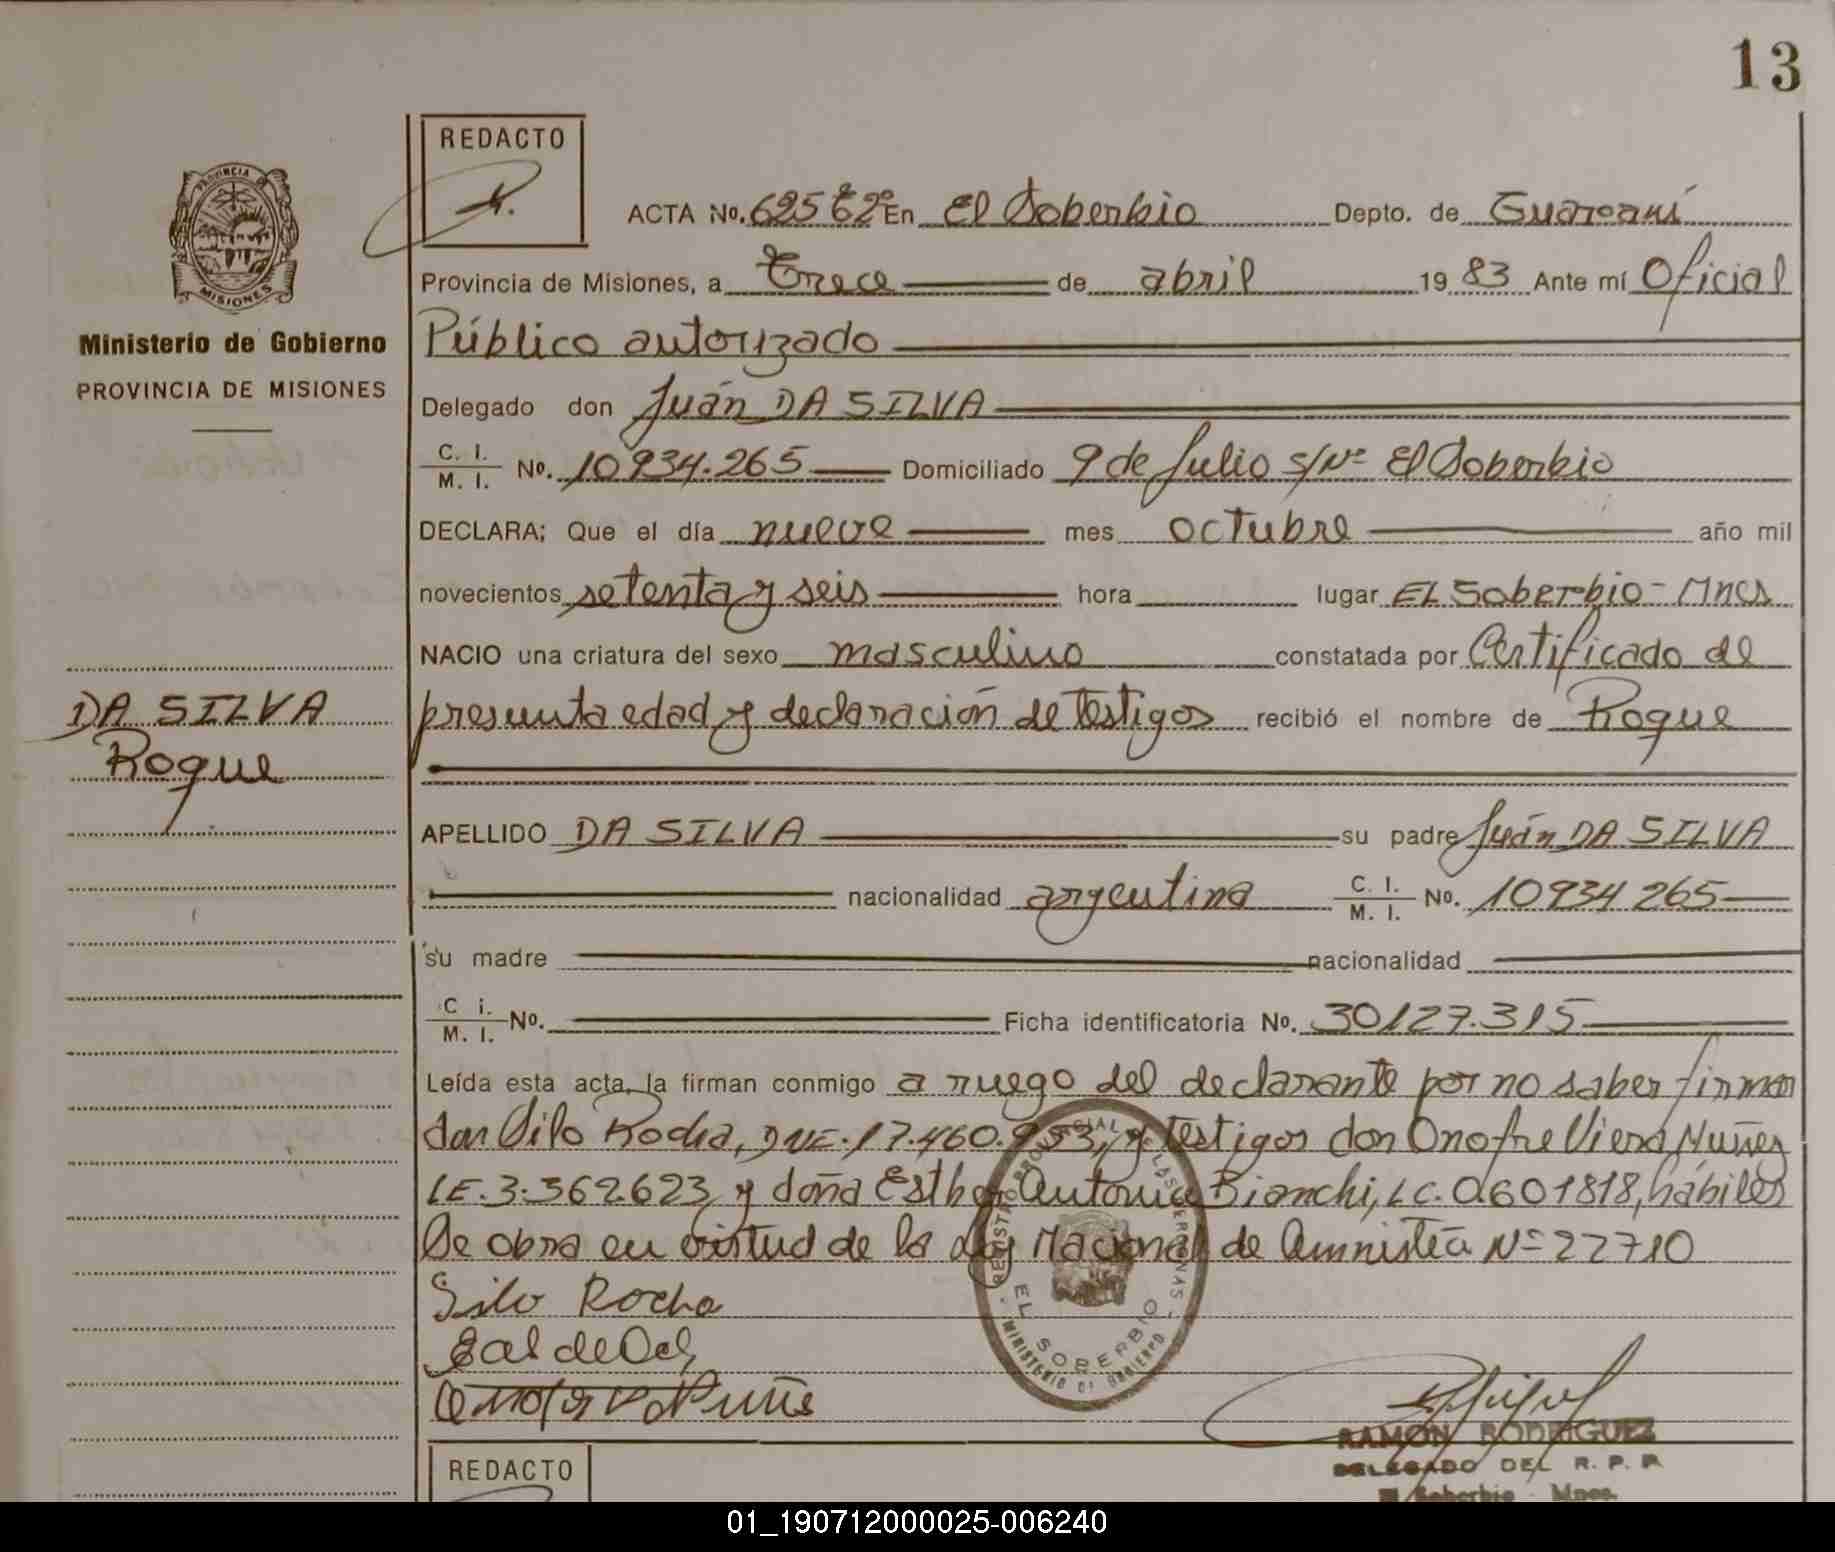 13
REDACTO
PROVINCIA DE
MISIONES
Ministerio de Gobierno
PROVINCIA DE MISIONES
ACTA No. 625 En El Soberbio Depto. de Guaraní
Provincia de Misiones, a Trece de abril 19 83 Ante mí Oficial
Público autorizado
Delegado don Juán DA SILVA
C. I. / M. I. No. 10934.265 Domiciliado 9 de Julio s/Nº El Soberbio
DECLARA; Que el día nueve mes octubre año mil
novecientos setenta y seis hora lugar EL Soberbio - Mnes
NACIO una criatura del sexo masculino constatada por Certificado de
presunta edad y declaración de testigos recibió el nombre de Roque
DA SILVA
Roque
APELLIDO DA SILVA su padre Juán DA SILVA
nacionalidad argentina C. I. / M. I. No. 10934265
su madre nacionalidad
C i. / M. I. No. Ficha identificatoria No. 30127.315
Leída esta acta, la firman conmigo a ruego del declarante por no saber firmar
don Silo Rocha, DNI. 17.460.953, y testigos don Onofre Viera Nuñez
LE. 3.362.623 y doña Esther Antonia Bianchi, LC. 0.601818, hábiles
Se obra en virtud de la Ley Nacional de Amnistía Nº 22710
REGISTRO PROVINCIAL DE LAS PERSONAS
EL SOBERBIO
MINISTERIO DE GOBIERNO
Silo Rocha
RAMON RODRIGUEZ
DELEGADO DEL R. P. P.
El Soberbio - Mnes.
REDACTO
01_190712000025-006240